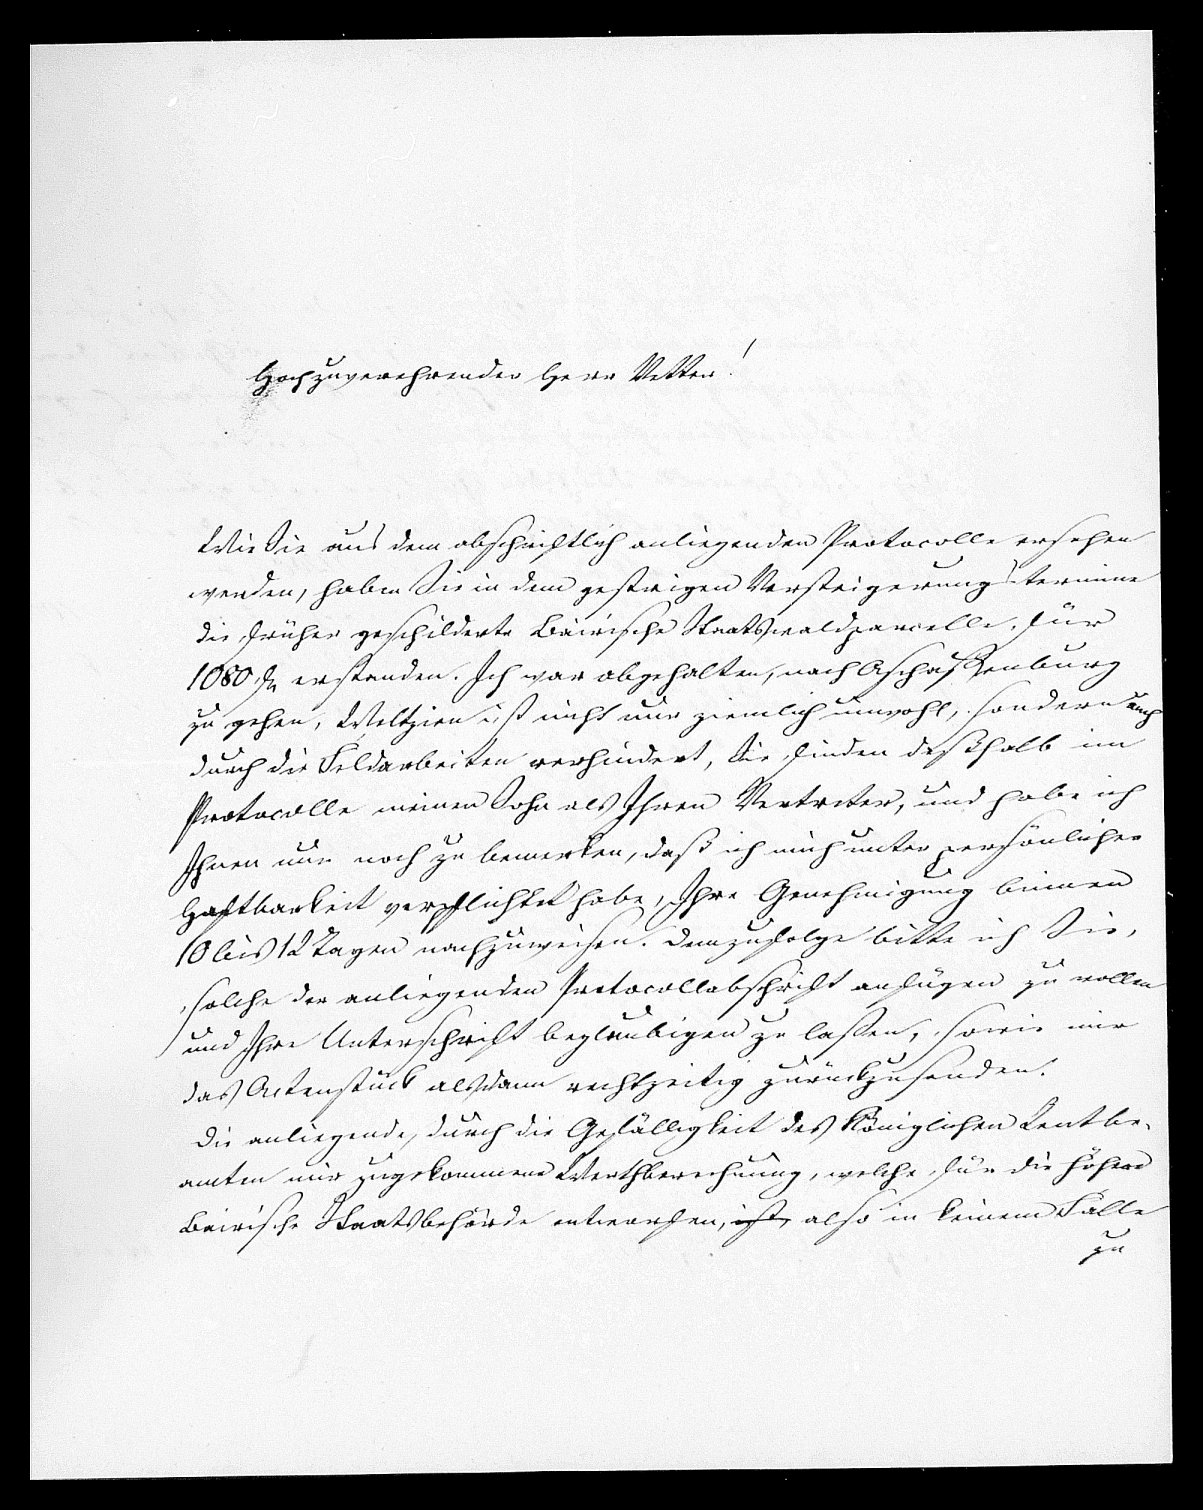 Hochzuverehrender Herr Vetter!
Wie Sie aus dem abschriftlich anliegenden Protocolle ersehen
werden, haben Sie in dem gestrigen Versteigerungstermine
die früher geschilderte Bairische Staatswaldparcelle für
1080 fl erstanden. Ich war abgehalten, nach Aschaffenburg
zu gehen, Weltzien ist nicht nur ziemlich unwohl, sondern auch
durch die Feldarbeiten verhindert, Sie finden deßhalb im
Protocolle meinen Sohn als Ihren Vertreter, und habe ich
Ihnen nur noch zu bemerken, daß ich mich unter persönlicher
Haftbarkeit verpflichtet habe, Ihre Genehmigung binnen
10 bis 12 Tagen nachzuweisen. Demzufolge bitte ich Sie,
solche der anliegenden Protocollabschrift anfügen zu wollen
und Ihre Unterschrift beglaubigen zu laßen, sowie mir
das Actenstück alsdann rechtzeitig zurückzusenden.
Die anliegende, durch die Gefälligkeit des Königlichen Rentbe-
amten mir zugekommene Werthberechnung, welche für die höhere
Bairische Staatsbehörde entworfen, ist, also in keinem Falle
zu